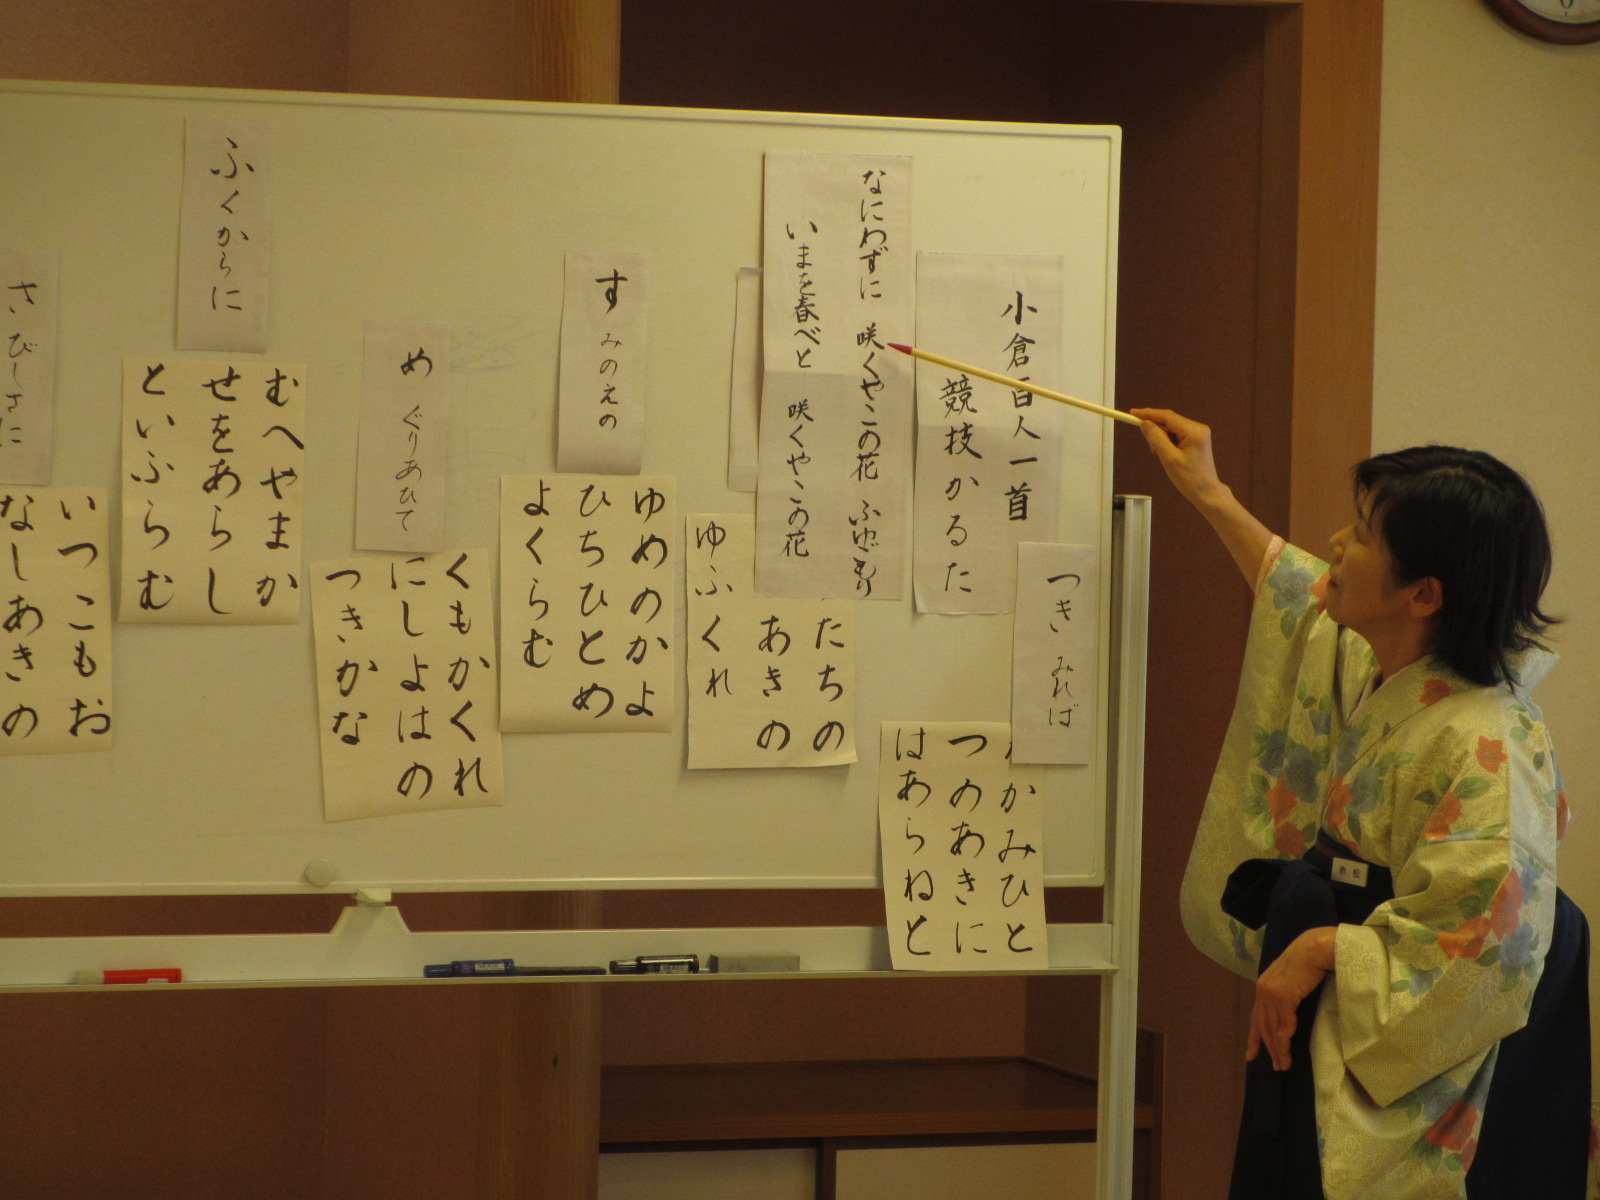 小倉百人一首
競技かるた
なにわずに 咲くやこの花 ふゆごもり
いまを春べと 咲くやこの花
つきみれば
かみひと
つのあきに
はあらねと
たちの
あきの
ゆふくれ
すみのえの
ゆめのかよ
ひちひとめ
よくらむ
めぐりあひて
くもかくれ
にしよはの
つきかな
ふくからに
むへやまか
せをあらし
といふらむ
さびしさに
いつこもお
なしあきの
赤松